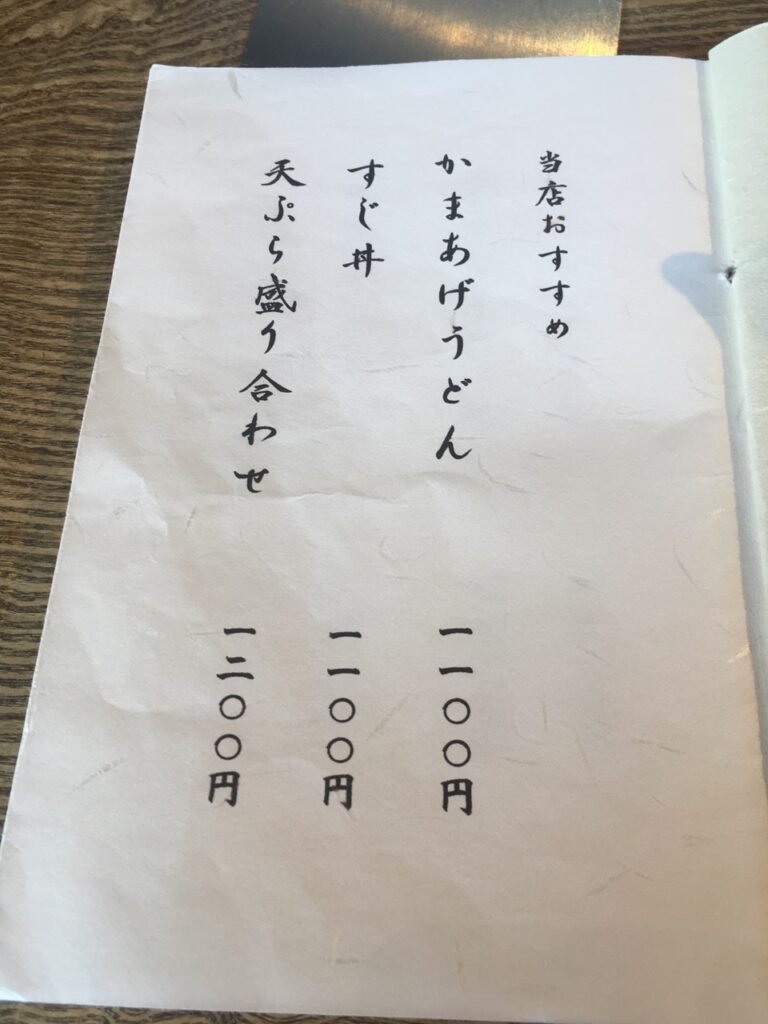 当店おすすめ
かまあげうどん 一一〇〇円
すじ丼 一一〇〇円
天ぷら盛り合わせ 一二〇〇円